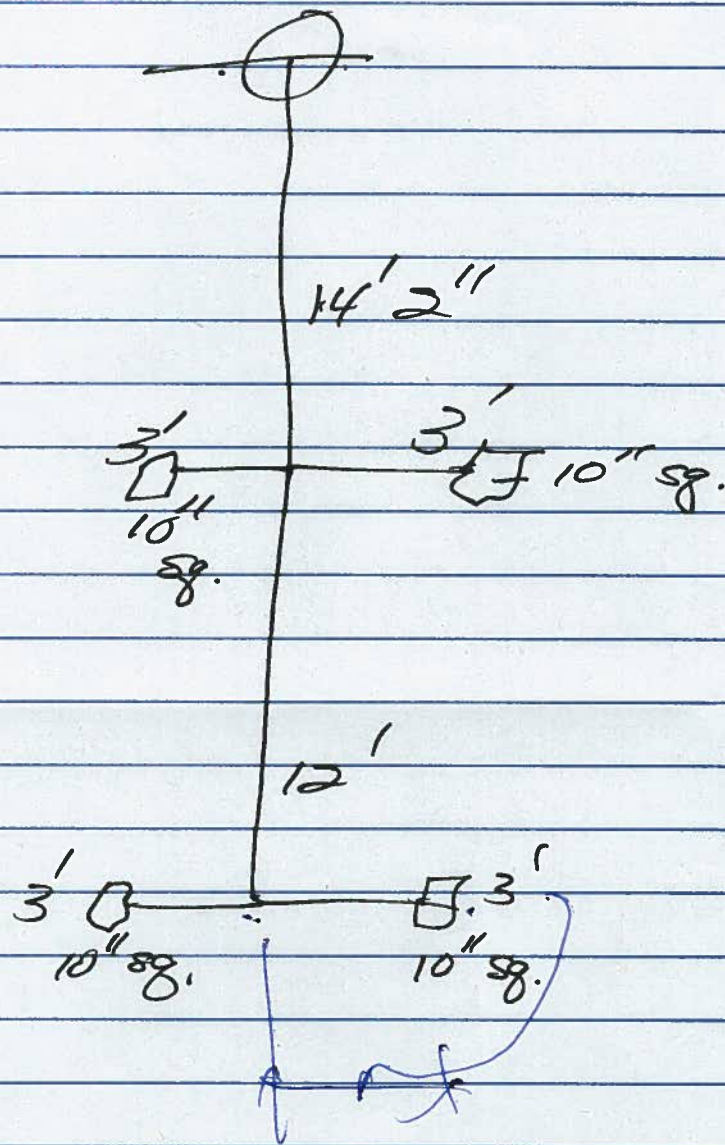 14' 2"
3'
3'
10" sq.
10"
sq.
12'
3'
3'
10" sq.
10" sq.